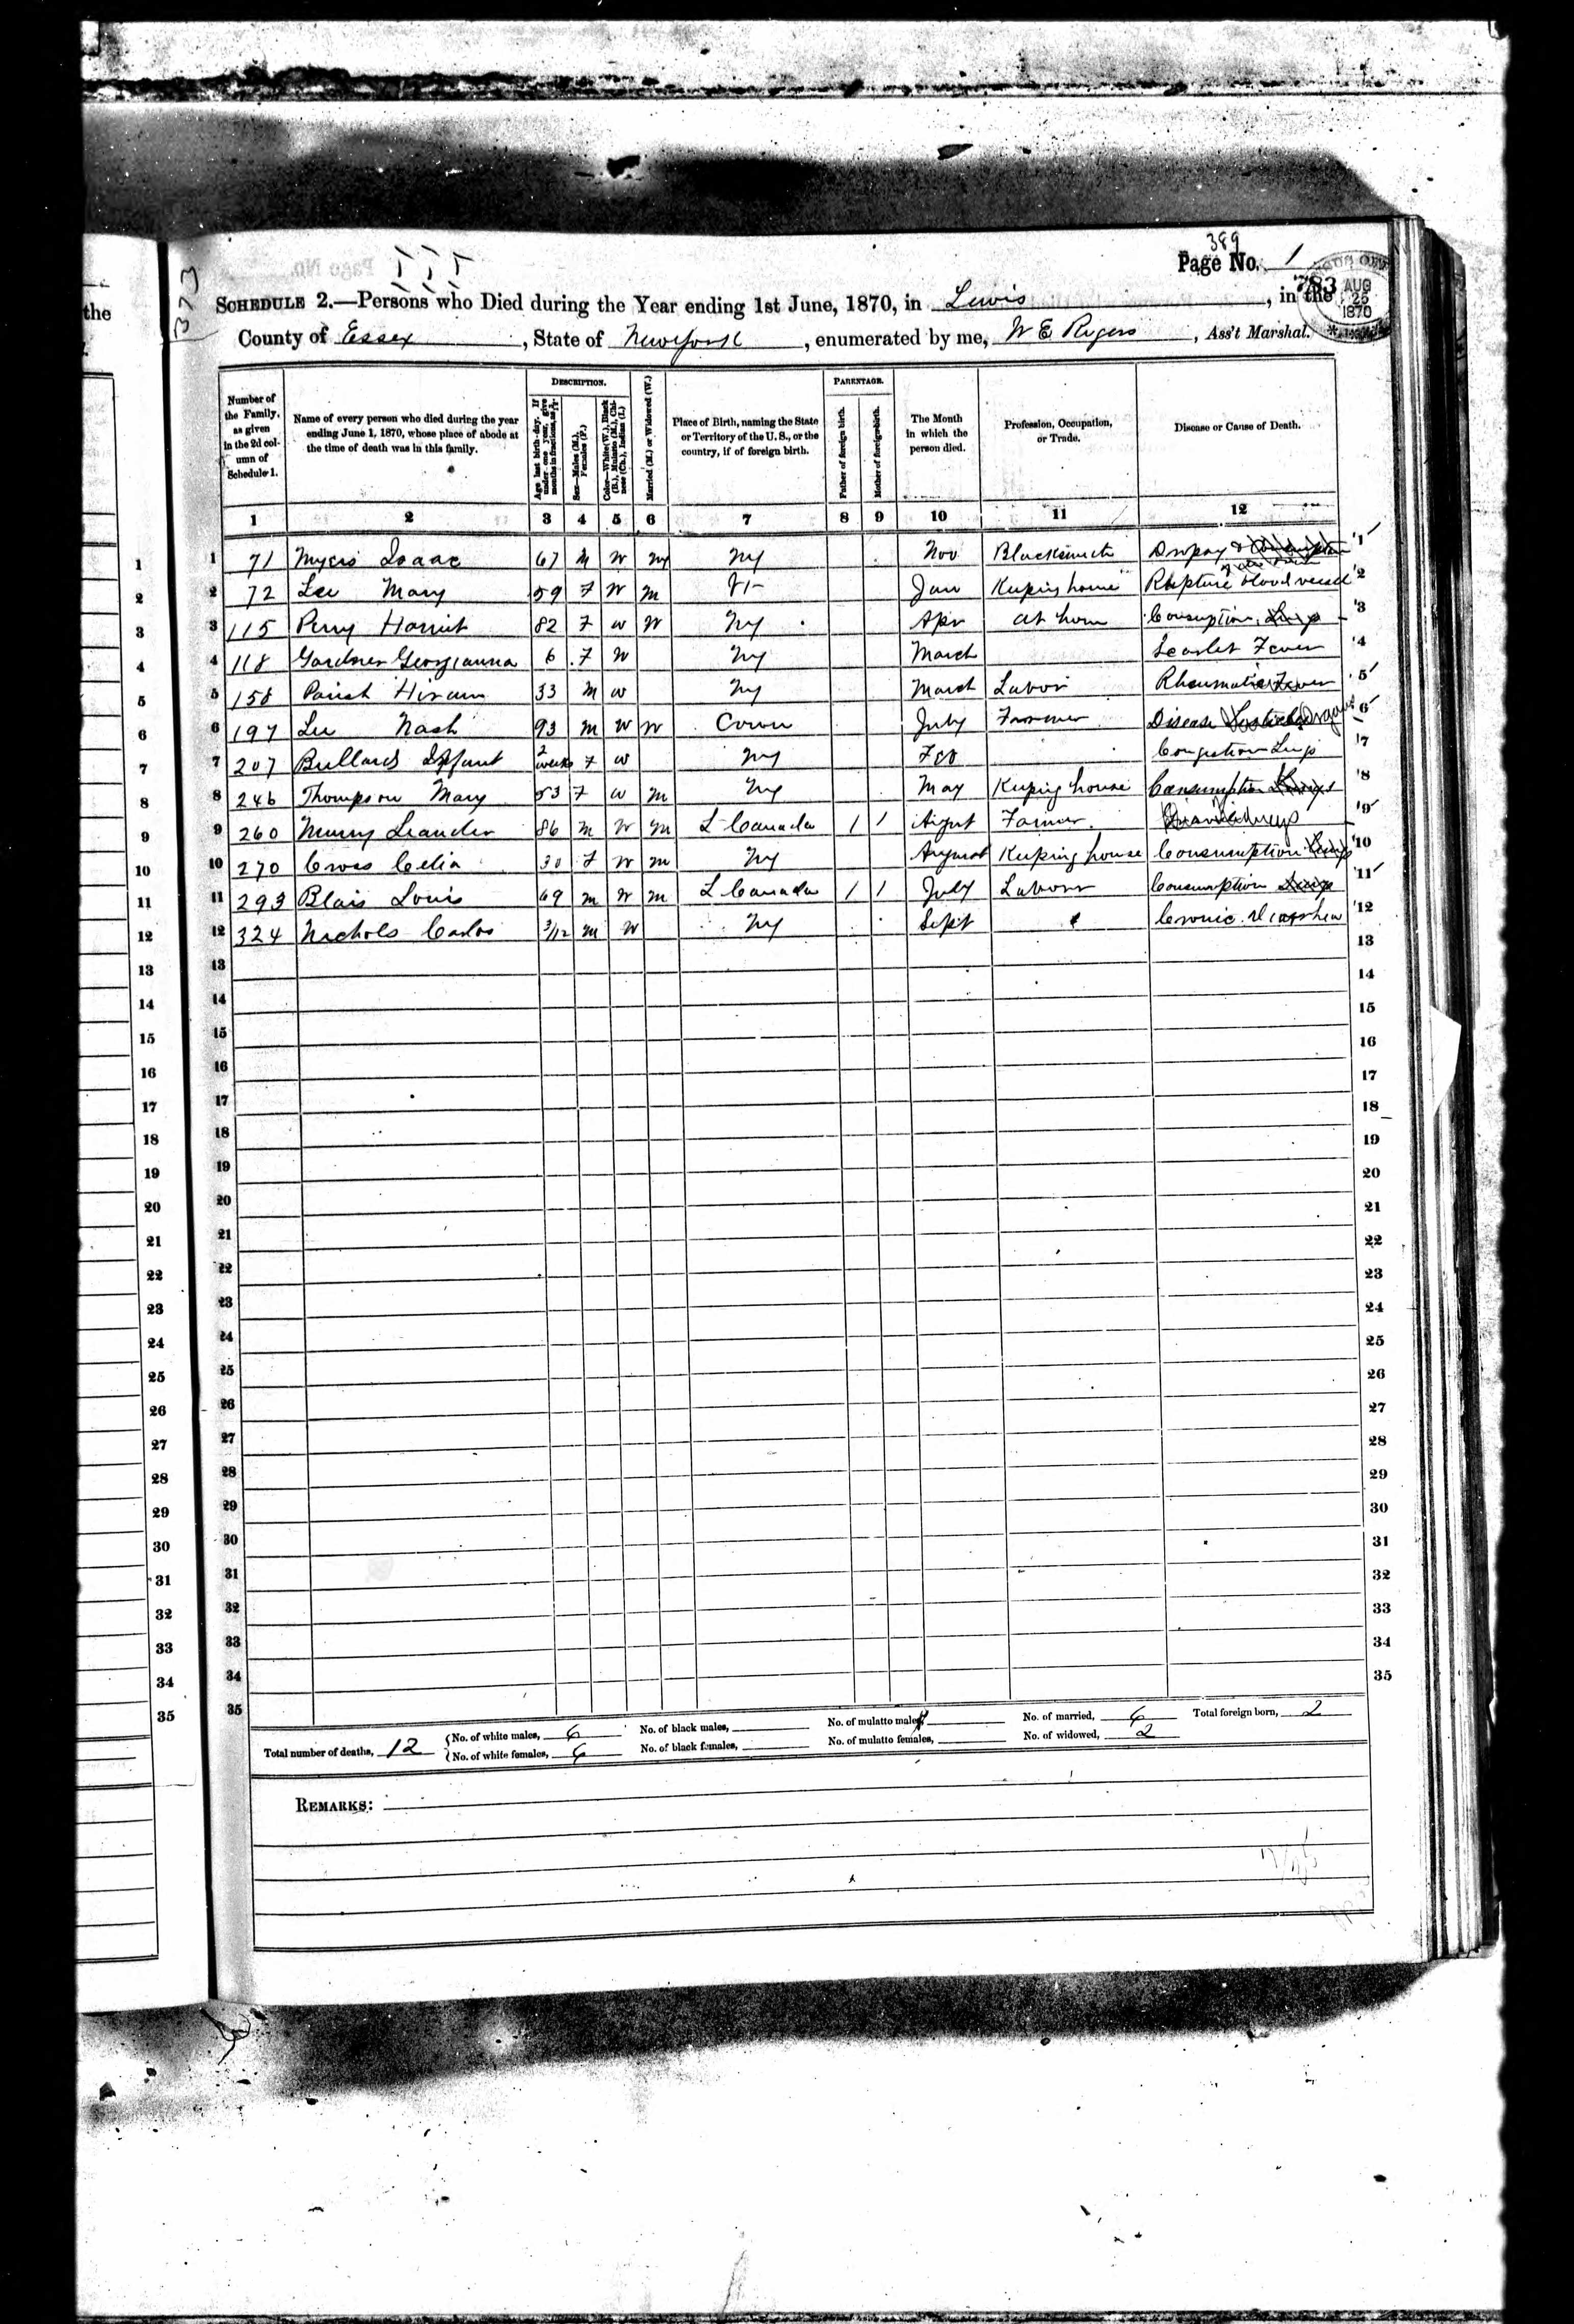 the
373
389
Page No. 1
783
AUG
25
1870
SCHEDULE 2.—Persons who Died during the Year ending 1st June, 1870, in Lewis, in the
County of Essex, State of New York, enumerated by me, W E Rogers, Ass't Marshal.
Number of the Family, as given in the 2d column of Schedule 1.
Name of every person who died during the year ending June 1, 1870, whose place of abode at the time of death was in this family.
DESCRIPTION.
Age last birth-day. If under one year, give months in fractions, as
Sex—Males (M.), Females (F.)
Color—White (W.), Black (B.), Mulatto (M.), Chinese (Ch.), Indian (I.)
Married (M.) or Widowed (W.)
Place of Birth, naming the State or Territory of the U. S., or the country, if of foreign birth.
PARENTAGE.
Father of foreign birth.
Mother of foreign birth.
The Month in which the person died.
Profession, Occupation, or Trade.
Disease or Cause of Death.
1 2 3 4 5 6 7 8 9 10 11 12
1 71 Myers Isaac 67 M W M NY Nov Blacksmith Dropsy & 1
2 72 Lee Mary 59 F W M Vt Jan Keeping house Rupture blood vessel 2
3 115 Perry Harriet 82 F W W NY Apr at home Consuption Lungs 3
4 118 Gardner Georgianna 6 F W NY March Scarlet Fever 4
5 158 Parish Hiram 33 M W NY March Labor Rheumatic Fever 5
6 197 Lee Nash 93 M W W Conn July Farmer Disease Organs 6
7 207 Bullard Infant 2 weeks F W NY Feb Congestion Lungs 7
8 246 Thompson Mary 53 F W M NY May Keeping house Consumption Lungs 8
9 260 Murry Leander 86 M W M L Canada 1 1 August Farmer 9
10 270 Cross Celia 30 F W M NY August Keeping house Consumption Lungs 10
11 293 Blais Louis 69 M W M L Canada 1 1 July Laborr Consumption Lungs 11
12 324 Nichols Carlos 3/12 M W NY Sept Cronic Diarrhea 12
13 13
14 14
15 15
16 16
17 17
18 18
19 19
20 20
21 21
22 22
23 23
24 24
25 25
26 26
27 27
28 28
29 29
30 30
31 31
32 32
33 33
34 34
35 35
Total number of deaths, 12
No. of white males, 6 No. of black males, No. of mulatto males, No. of married, 6 Total foreign born, 2
No. of white females, 6 No. of black females, No. of mulatto females, No. of widowed, 2
REMARKS: